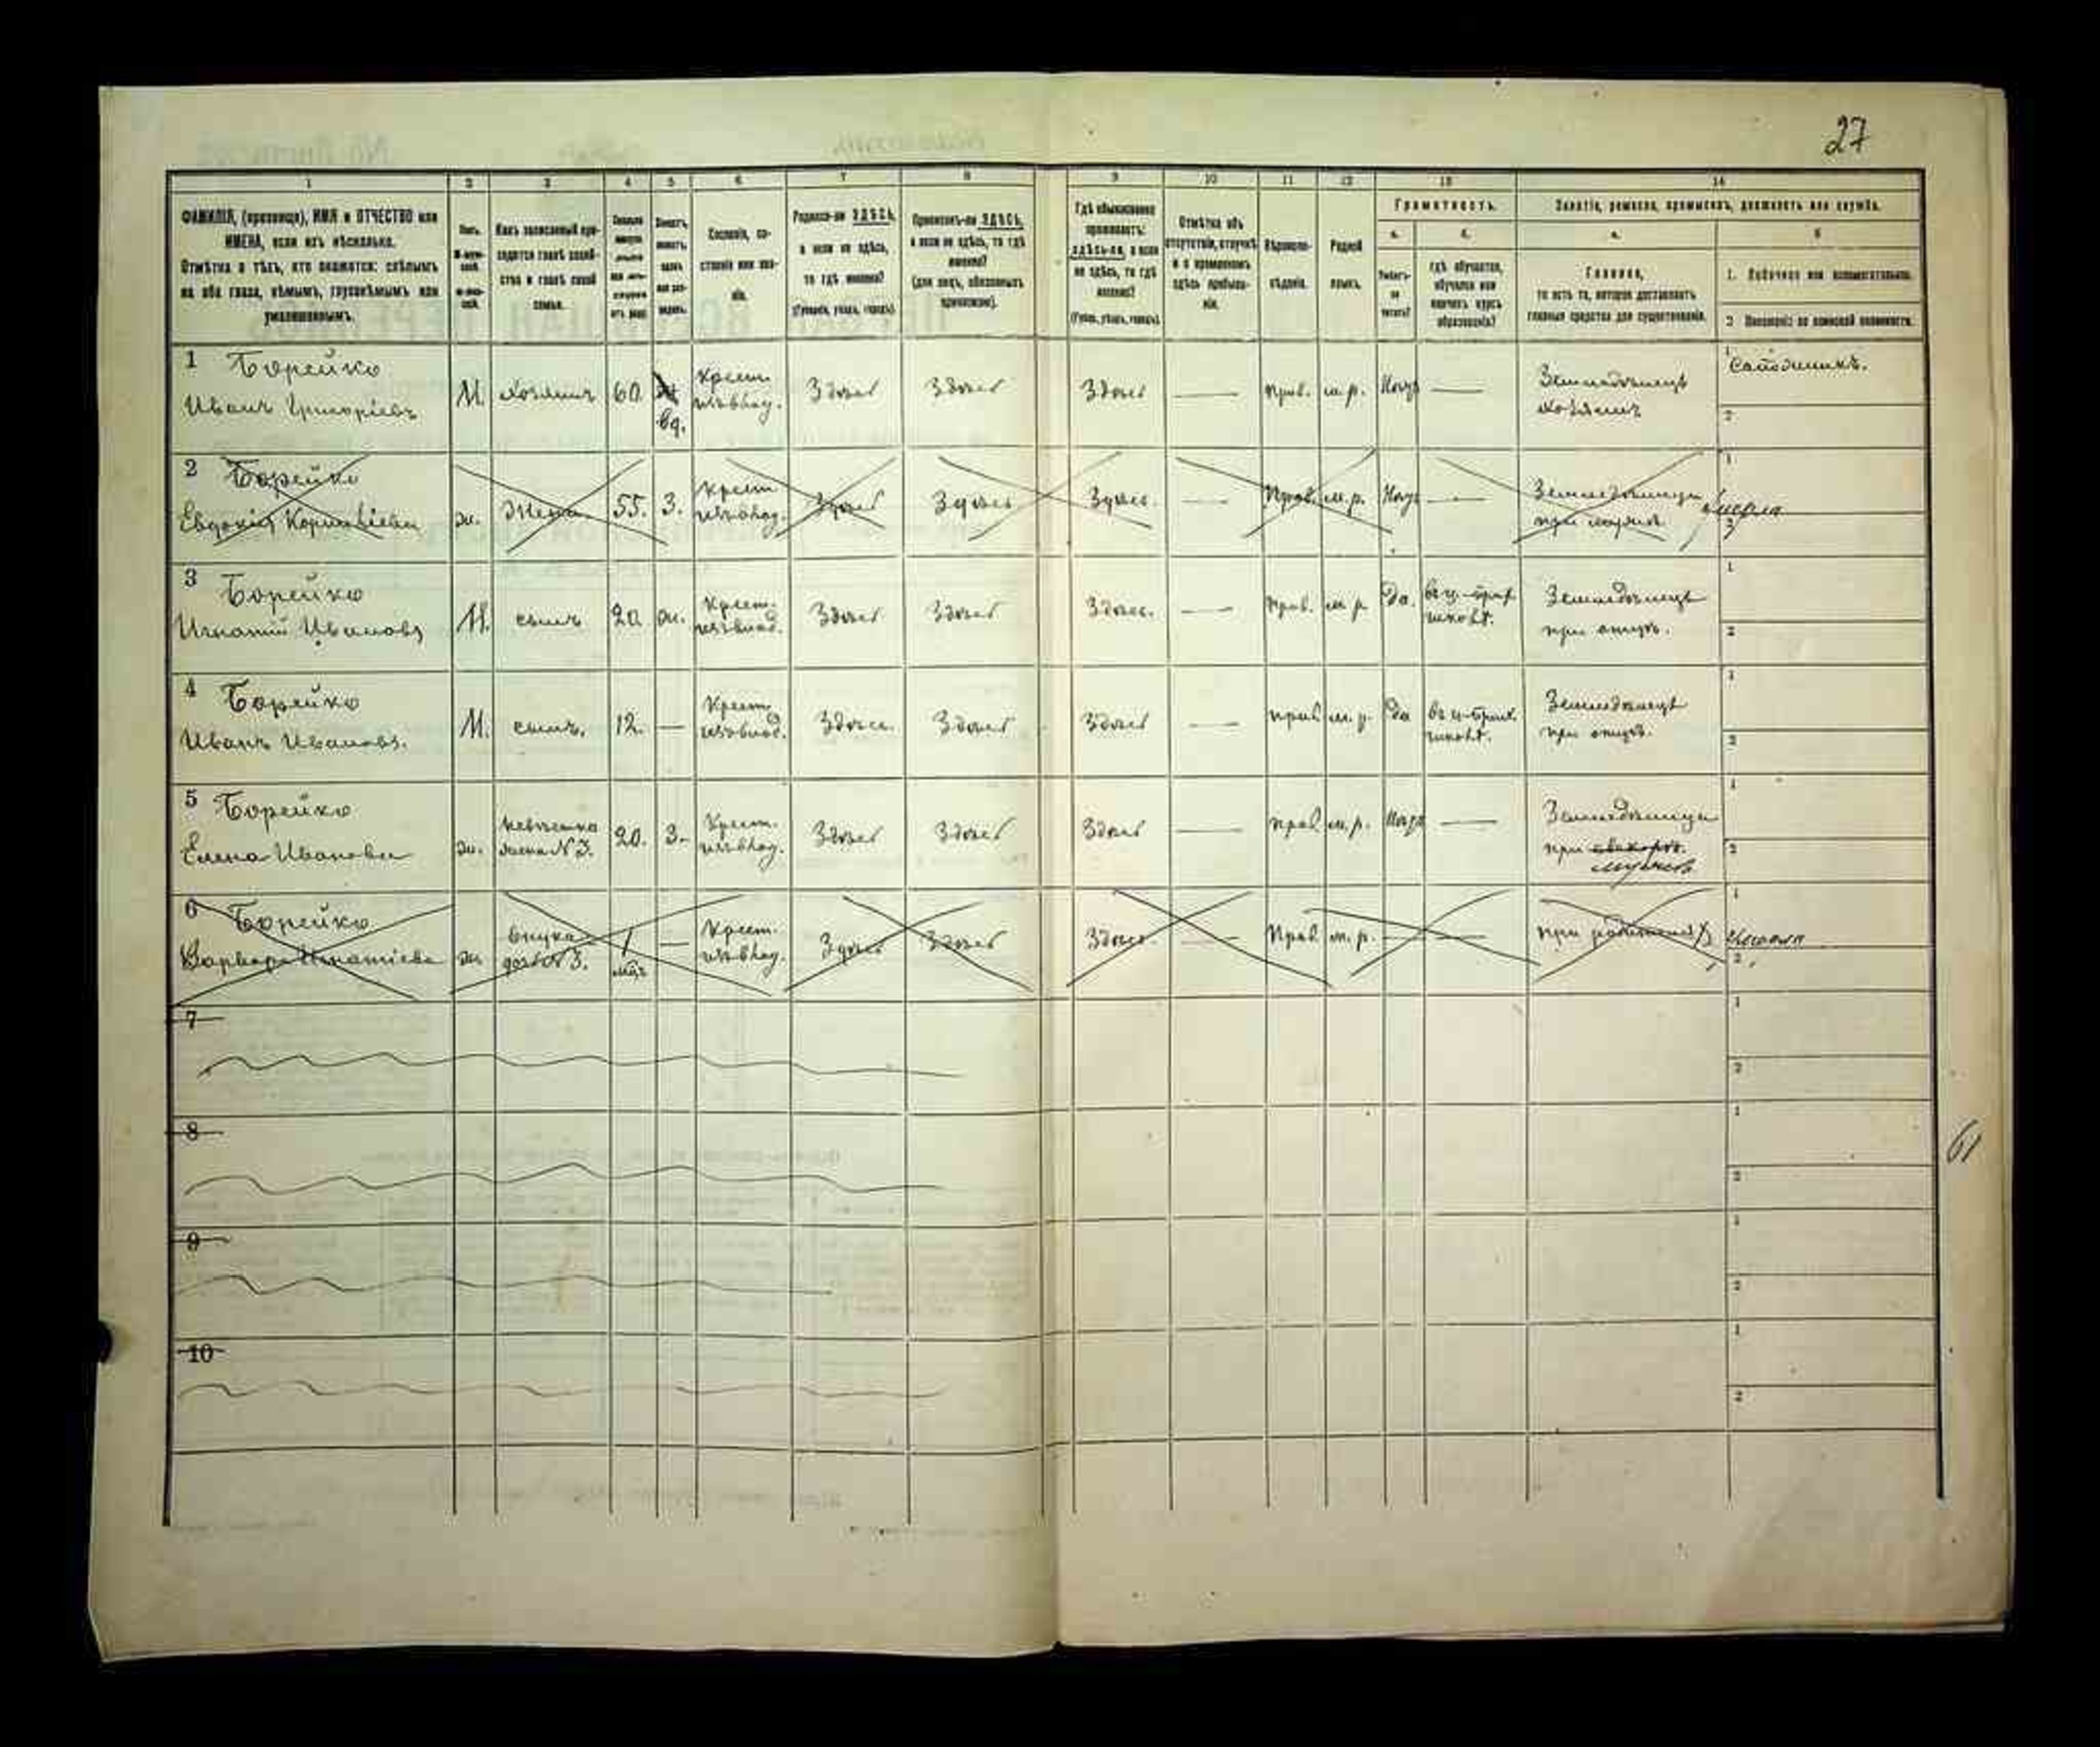 27
1 2 3 4 5 6 7 8 9 10 11 12 13 14
ФАМИЛІЯ, (прозвище), ИМЯ и ОТЧЕСТВО или
ИМЕНА, если ихъ нѣсколько.
Отмѣтка о тѣхъ, кто окажется: слѣпымъ
на оба глаза, нѣмымъ, глухонѣмымъ или
умалишеннымъ.
Полъ.
Какъ записанный при-
ходится главѣ хозяй-
ства и главѣ своей
семьи.
Сословіе, со-
стояніе или зва-
ніе.
Родился-ли ЗДѢСЬ,
а если не здѣсь,
то гдѣ именно?
(Губернія, уѣздъ, городъ).
Приписанъ-ли ЗДѢСЬ,
а если не здѣсь, то гдѣ
именно?
(для лицъ, обязанныхъ
припискою).
Гдѣ обыкновенно
проживаетъ:
здѣсь-ли, а если
не здѣсь, то гдѣ
именно?
(Губ., уѣздъ, городъ).
Отмѣтка объ
отсутствіи, отлучкѣ
и о временномъ
здѣсь пребыва-
ніи.
Вѣроиспо-
вѣданіе.
Родной
языкъ.
Грамотность.
а. б.
Умѣетъ-
ли
читать?
гдѣ обучается,
обучался или
кончилъ курсъ
образованія?
Занятіе, ремесло, промыселъ, должность или служба.
а. б
Главное,
то есть то, которое доставляетъ
главныя средства для существованія.
1. Побочное или вспомогательное.
2 Положеніе по воинской повинности.
1 Борейко
Иванъ Григоріевъ
М. хозяинъ 60 вд. Крест. изъ влад. Здѣсь Здѣсь Здѣсь — прав. м.р. Нѣтъ —
Земледѣлецъ
хозяинъ
1
2
2 Борейко
Евдокія
ж. Жена 55. З. Крест. изъ влад. Здѣсь Здѣсь Здѣсь. — Прав. м.р. —
при мужѣ
умерла
1
3 Борейко
Игнатій Ивановъ
М. сынъ 20 ж. Крест. изъ влад. Здѣсь Здѣсь Здѣсь. — прав. м.р Да.
Земледѣлецъ
при отцѣ.
1
2
4 Борейко
Иванъ Ивановъ.
М. сынъ. 12. — Крест. изъ влад. Здѣсь. Здѣсь Здѣсь — прав м.р. Да
Земледѣлецъ
при отцѣ.
1
2
5 Борейко
Елена Иванова
ж. невѣстка жена N 3. 20. З. Крест. изъ влад. Здѣсь Здѣсь Здѣсь — прав. м.р. —
при свекорѣ.
мужѣ
1
2
6 Борейко
Варвара Игнатіева
ж внука дочь N 3. 1 мѣс — Крест. изъ влад. Здѣсь Здѣсь Здѣсь. — Прав. м.р. — —
при родителяхъ
1
2
7
1
2
8
1
2
61
9
1
2
10
1
2